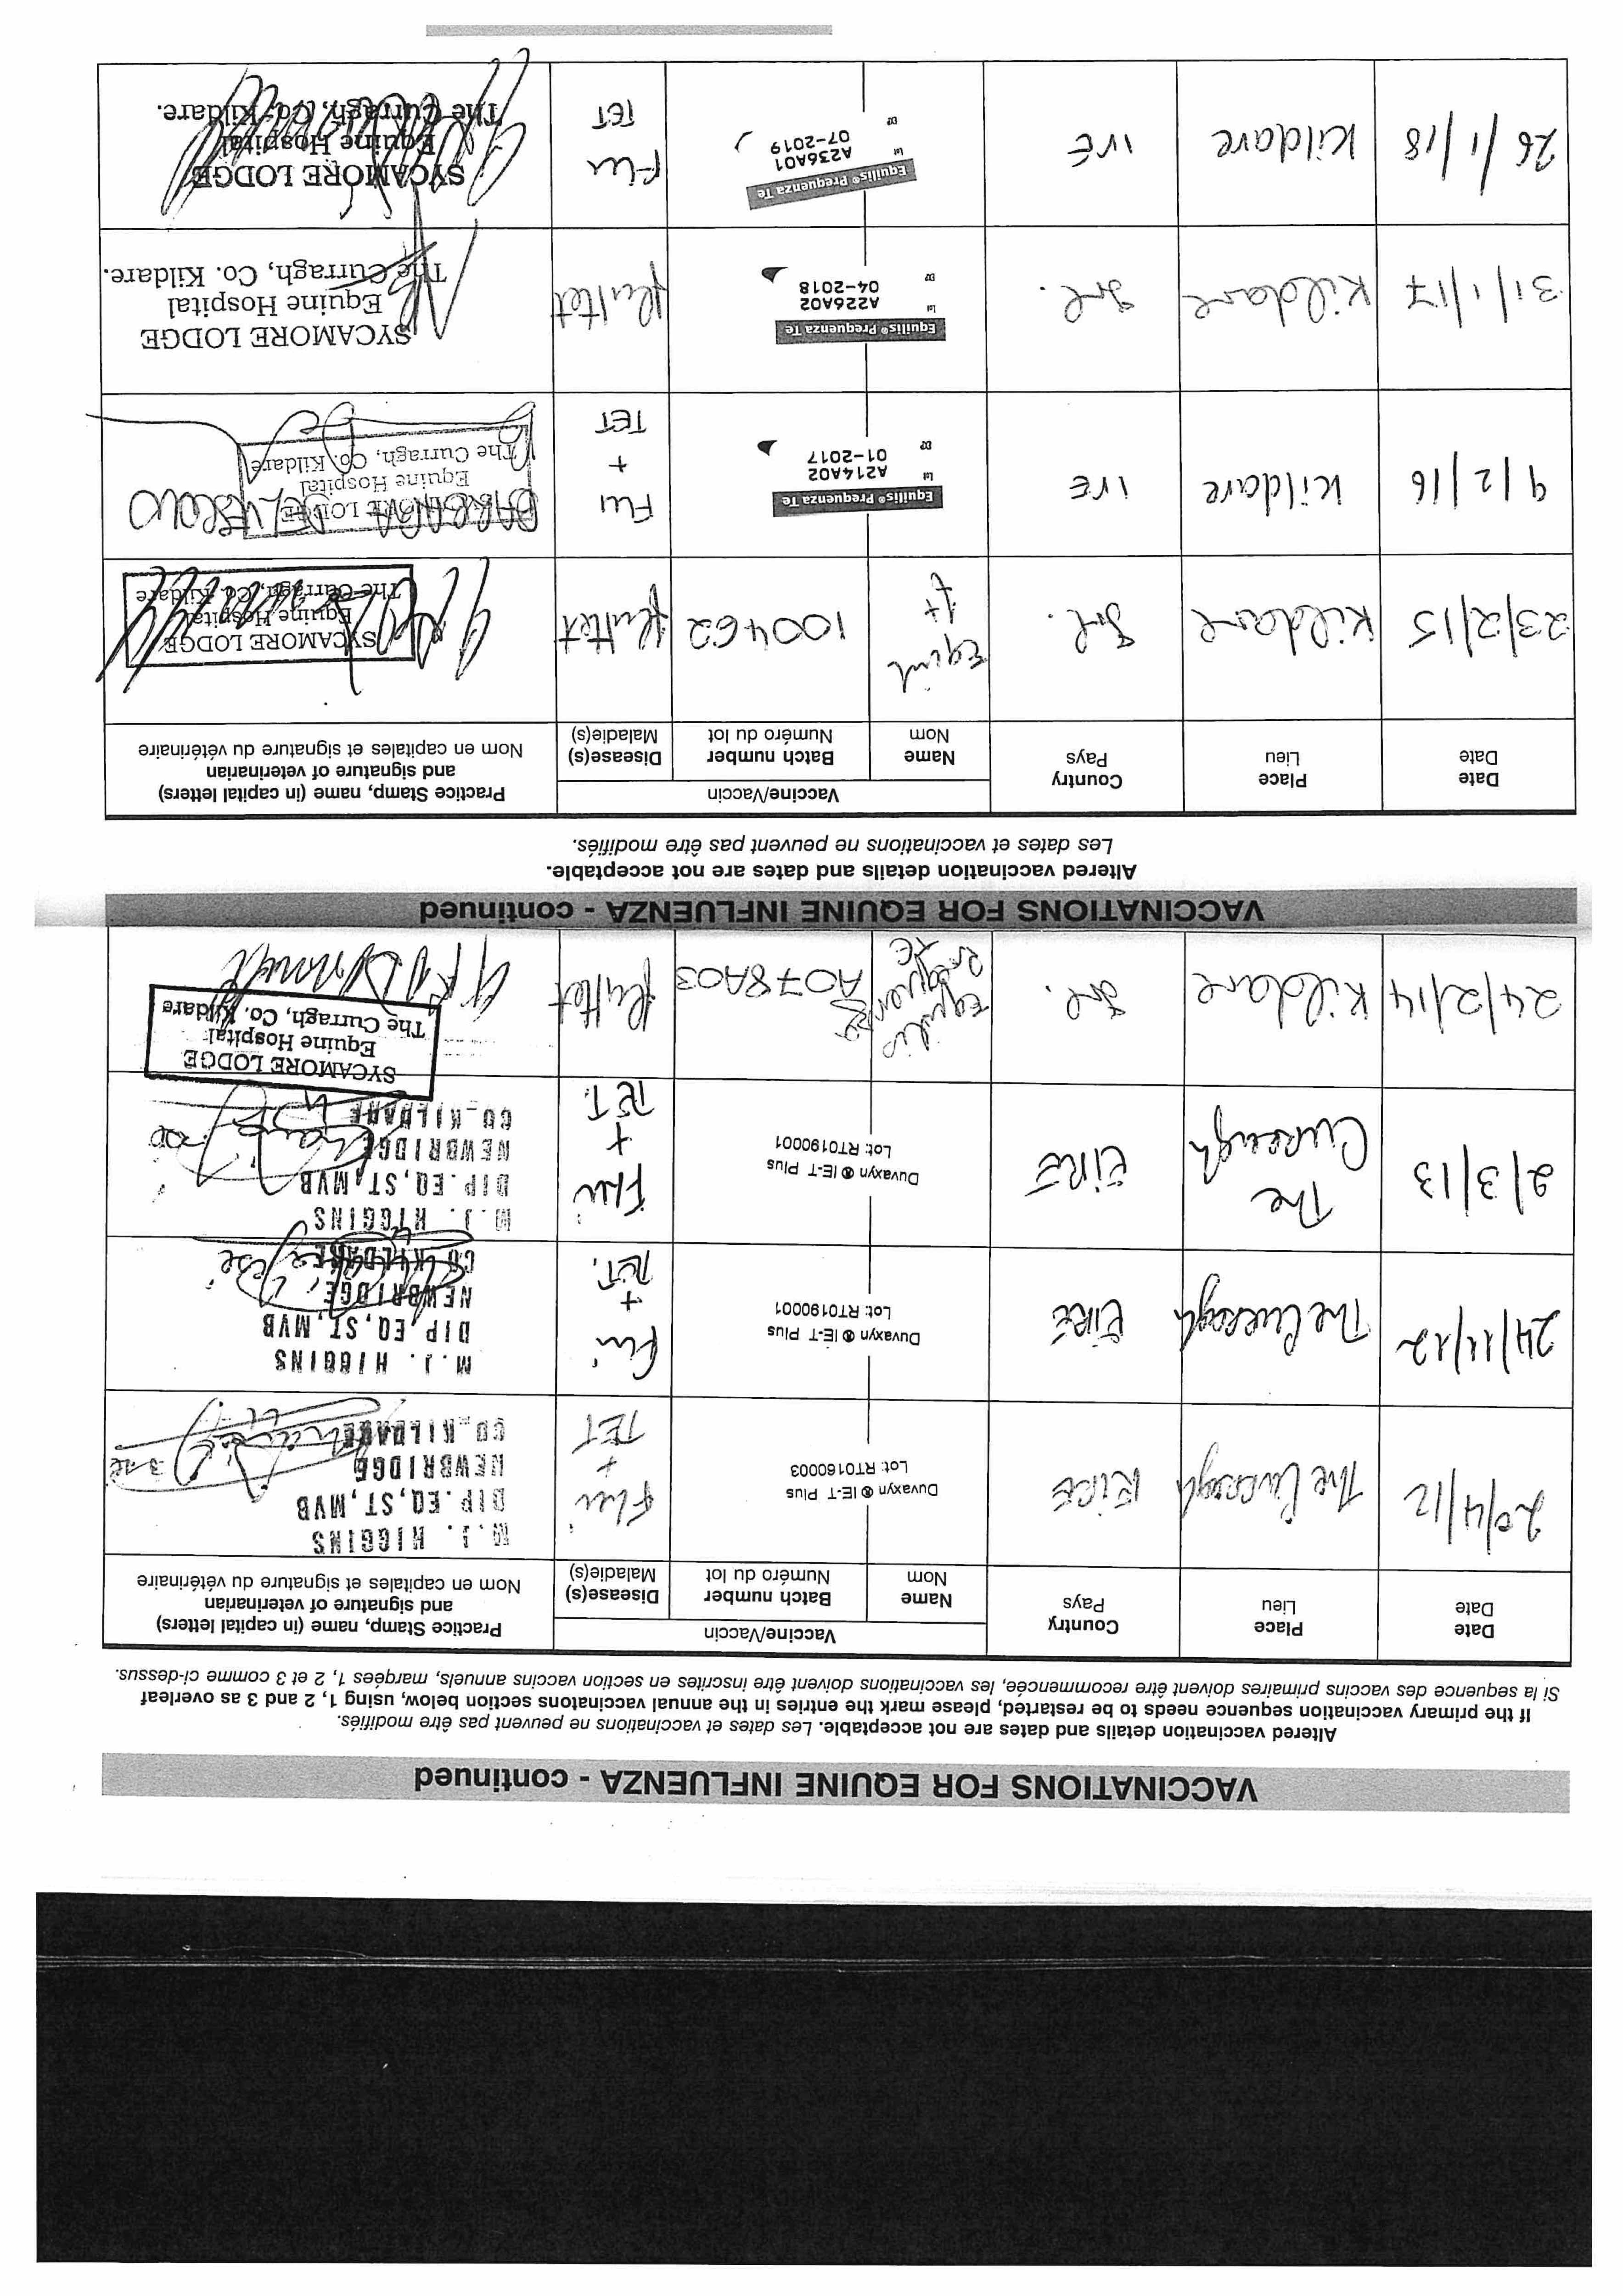 VACCINATIONS FOR EQUINE INFLUENZA - continued
Altered vaccination details and dates are not acceptable. Les dates et vaccinations ne peuvent pas être modifiés.
If the primary vaccination sequence needs to be restarted, please mark the entries in the annual vaccinatons section below, using 1, 2 and 3 as overleaf
Si la sequence des vaccins primaires doivent être recommencée, les vaccinations doivent être inscrites en section vaccins annuels, marqées 1, 2 et 3 comme ci-dessus.
Date
Date
Place
Lieu
Country
Pays
Vaccine/Vaccin
Name
Nom
Batch number
Numéro du lot
Disease(s)
Maladie(s)
Practice Stamp, name (in capital letters)
and signature of veterinarian
Nom en capitales et signature du vétérinaire
20/4/12
The Curragh
EIRE
Duvaxyn ® IE-T Plus
Lot: RT0160003
Flu
+
TET
M.J. HIGGINS
DIP.EQ,ST,MVB
NEWBRIDGE
CO_KILDARE
24/11/12
The Curragh
EIRÉ
Duvaxyn ® IE-T Plus
Lot: RT0190001
Flu
+
TET.
M.J. HIGGINS
DIP,EQ,ST,MVB
NEWBRIDGE
CO_KILDARE
2/3/13
The
Curragh
EIRÉ
Duvaxyn ® IE-T Plus
Lot: RT0190001
Flu
+
TET.
M.J. HIGGINS
DIP.EQ,ST,MVB
NEWBRIDGE
CO_KILDARE
24/2/14
Kildare
Irl.
Equilis
Prequenza
TE
A078A03
flu/tet
SYCAMORE LODGE
Equine Hospital
The Curragh, Co. Kildare
VACCINATIONS FOR EQUINE INFLUENZA - continued
Altered vaccination details and dates are not acceptable.
Les dates et vaccinations ne peuvent pas être modifiés.
Date
Date
Place
Lieu
Country
Pays
Vaccine/Vaccin
Name
Nom
Batch number
Numéro du lot
Disease(s)
Maladie(s)
Practice Stamp, name (in capital letters)
and signature of veterinarian
Nom en capitales et signature du vétérinaire
23/2/15
Kildare
Irl.
100462
flu/tet
SYCAMORE LODGE
Equine Hospital
The Curragh, Co. Kildare
9/2/16
Kildare
IRE
Equilis® Prequenza Te
Lot A214A02
EXP 01-2017
Flu
+
TET
SYCAMORE LODGE
Equine Hospital
The Curragh, Co. Kildare
31/1/17
Kildare
Irl.
Equilis® Prequenza Te
Lot A226A02
EXP 04-2018
flu/tet
SYCAMORE LODGE
Equine Hospital
The Curragh, Co. Kildare.
26/1/18
Kildare
IRE
Equilis® Prequenza Te
Lot A236A01
EXP 07-2019
Flu
TET
SYCAMORE LODGE
Equine Hospital
The Curragh, Co. Kildare.